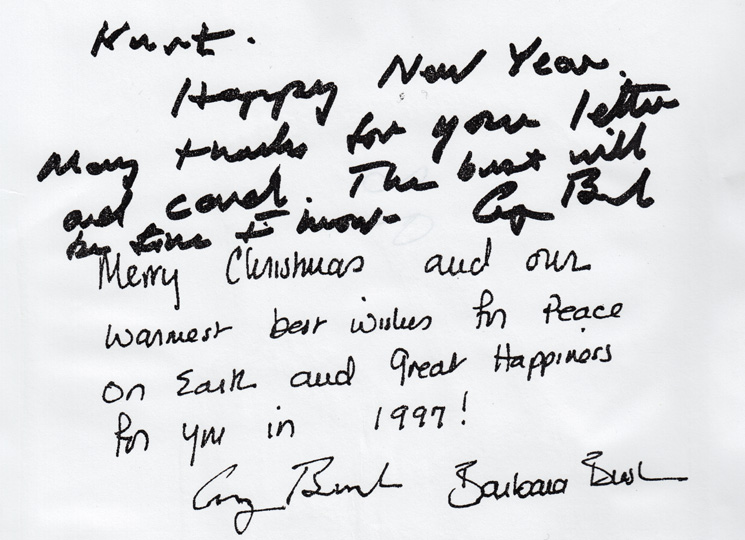 Kurt.
Happy New Year.
Many thanks for your letter
and card. The bust will
be fine I know- George Bush
Merry Christmas and our
warmest best wishes for Peace
on Earth and great Happiness
for you in 1997!
George Bush Barbara Bush